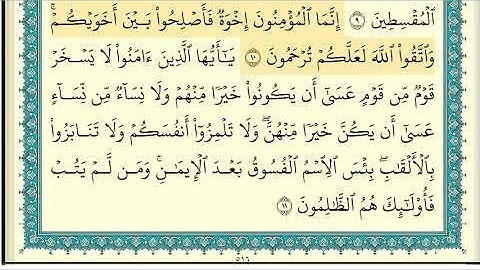 ٱلۡمُقۡسِطِينَ ٩ إِنَّمَا ٱلۡمُؤۡمِنُونَ إِخۡوَةٞ فَأَصۡلِحُواْ بَيۡنَ أَخَوَيۡكُمۡۚ
وَٱتَّقُواْ ٱللَّهَ لَعَلَّكُمۡ تُرۡحَمُونَ ١٠ يَٰٓأَيُّهَا ٱلَّذِينَ ءَامَنُواْ لَا يَسۡخَرۡ
قَوۡمٞ مِّن قَوۡمٍ عَسَىٰٓ أَن يَكُونُواْ خَيۡرٗا مِّنۡهُمۡ وَلَا نِسَآءٞ مِّن نِّسَآءٍ
عَسَىٰٓ أَن يَكُنَّ خَيۡرٗا مِّنۡهُنَّۖ وَلَا تَلۡمِزُوٓاْ أَنفُسَكُمۡ وَلَا تَنَابَزُواْ
بِٱلۡأَلۡقَٰبِۖ بِئۡسَ ٱلِٱسۡمُ ٱلۡفُسُوقُ بَعۡدَ ٱلۡإِيمَٰنِۚ وَمَن لَّمۡ يَتُبۡ
فَأُوْلَٰٓئِكَ هُمُ ٱلظَّٰلِمُونَ ١١
٥١٦